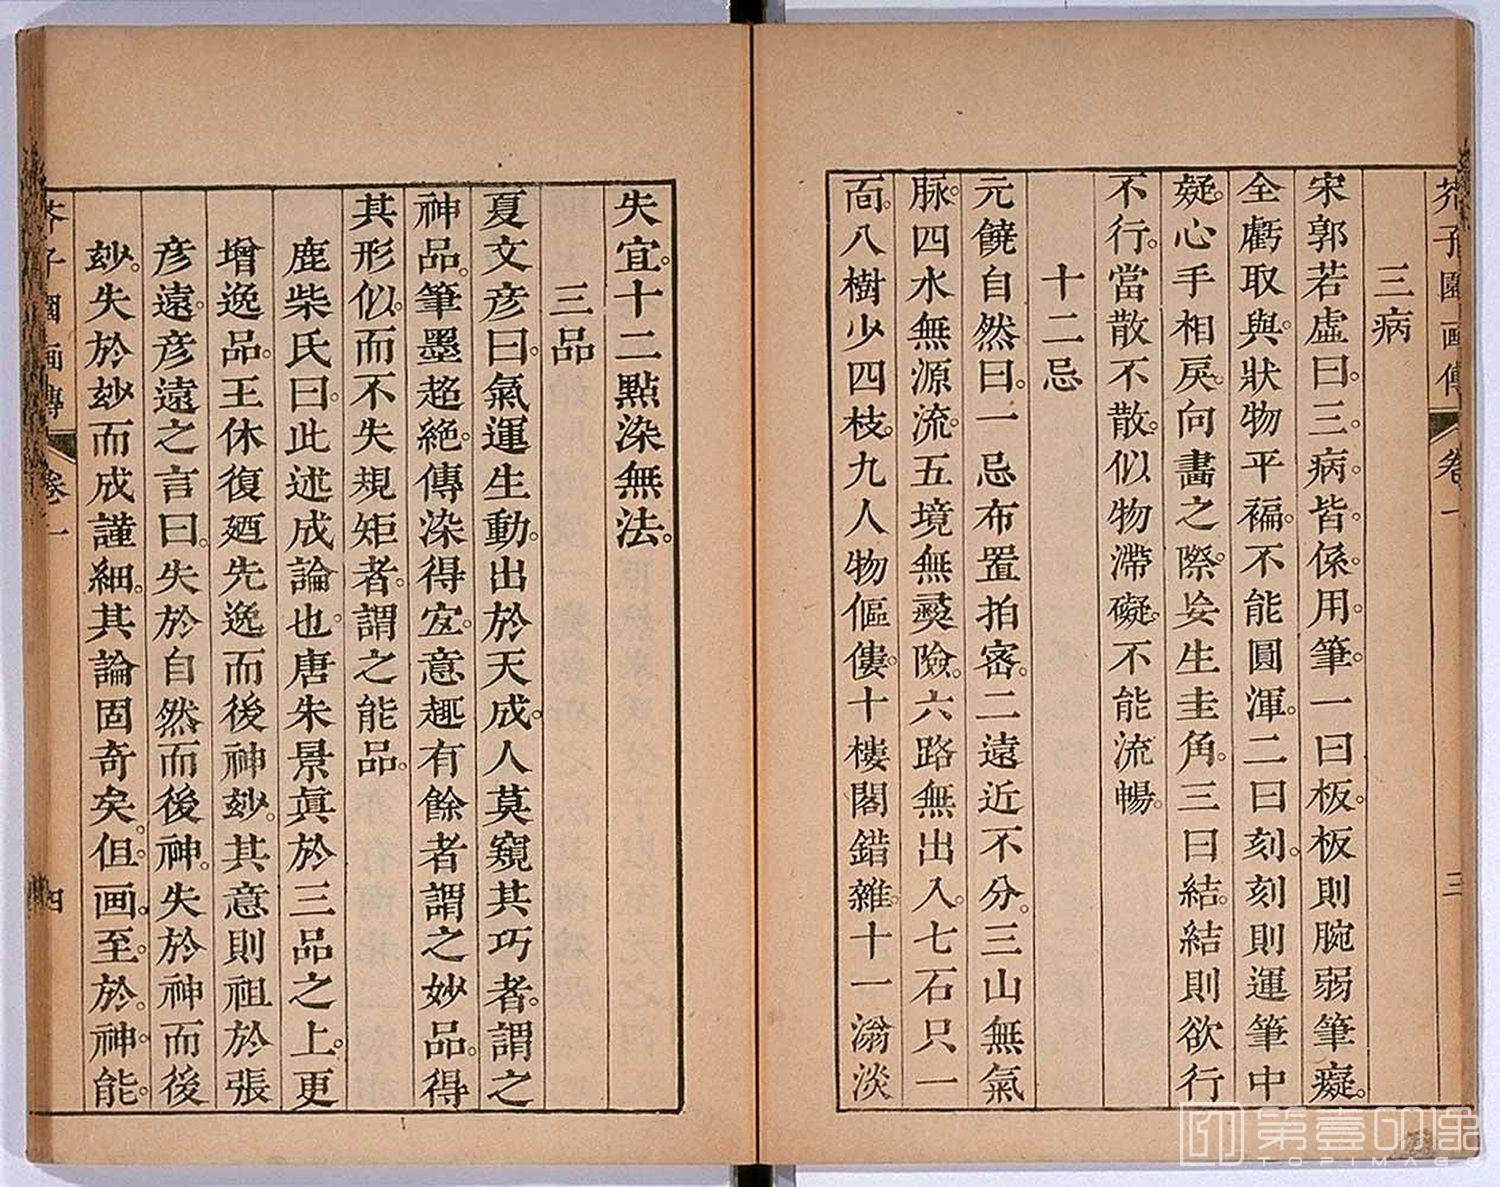 芥子園画傳 卷一 三
三病
宋郭若虛曰。三病。皆。係。用。筆。一曰板。板板則腕弱筆癡。
全虧取與。狀物平褊。不能圓渾。二曰刻。刻則運筆中
疑。心手相戾。向畫之際。妄生圭角。三曰結。結結則欲行
不行。當散不散。似物滯礙。不能流暢。
十二忌
元饒自然曰。一忌布置拍密。二遠近不分。三山無氣
脉。四水無源流。五境無夷險。六路無出入。七石只一
面。八樹少四枝。九人物傴僂。十樓閣錯雜。十一滃淡
失宜。十二點染無法。
三品
夏文彦曰。氣運生動。出於天成。人莫窺其巧者。謂之
神品。筆墨超絶。傳染得宜。意趣有餘者謂之妙品。得
其形似。而不失規矩者。謂之能品。
鹿柴氏曰。此述成論也。唐朱景眞於三品之上。更
增逸品。王休復廼先逸而後神玅。其意則祖於張
彦遠。彦遠之言曰。失於自然而後神。失於神而後
玅。失於玅而成謹細。其論固奇矣。但画。至。於。神。能。
芥子園画傳 卷一 四
第壹印象
TOPIMAGE